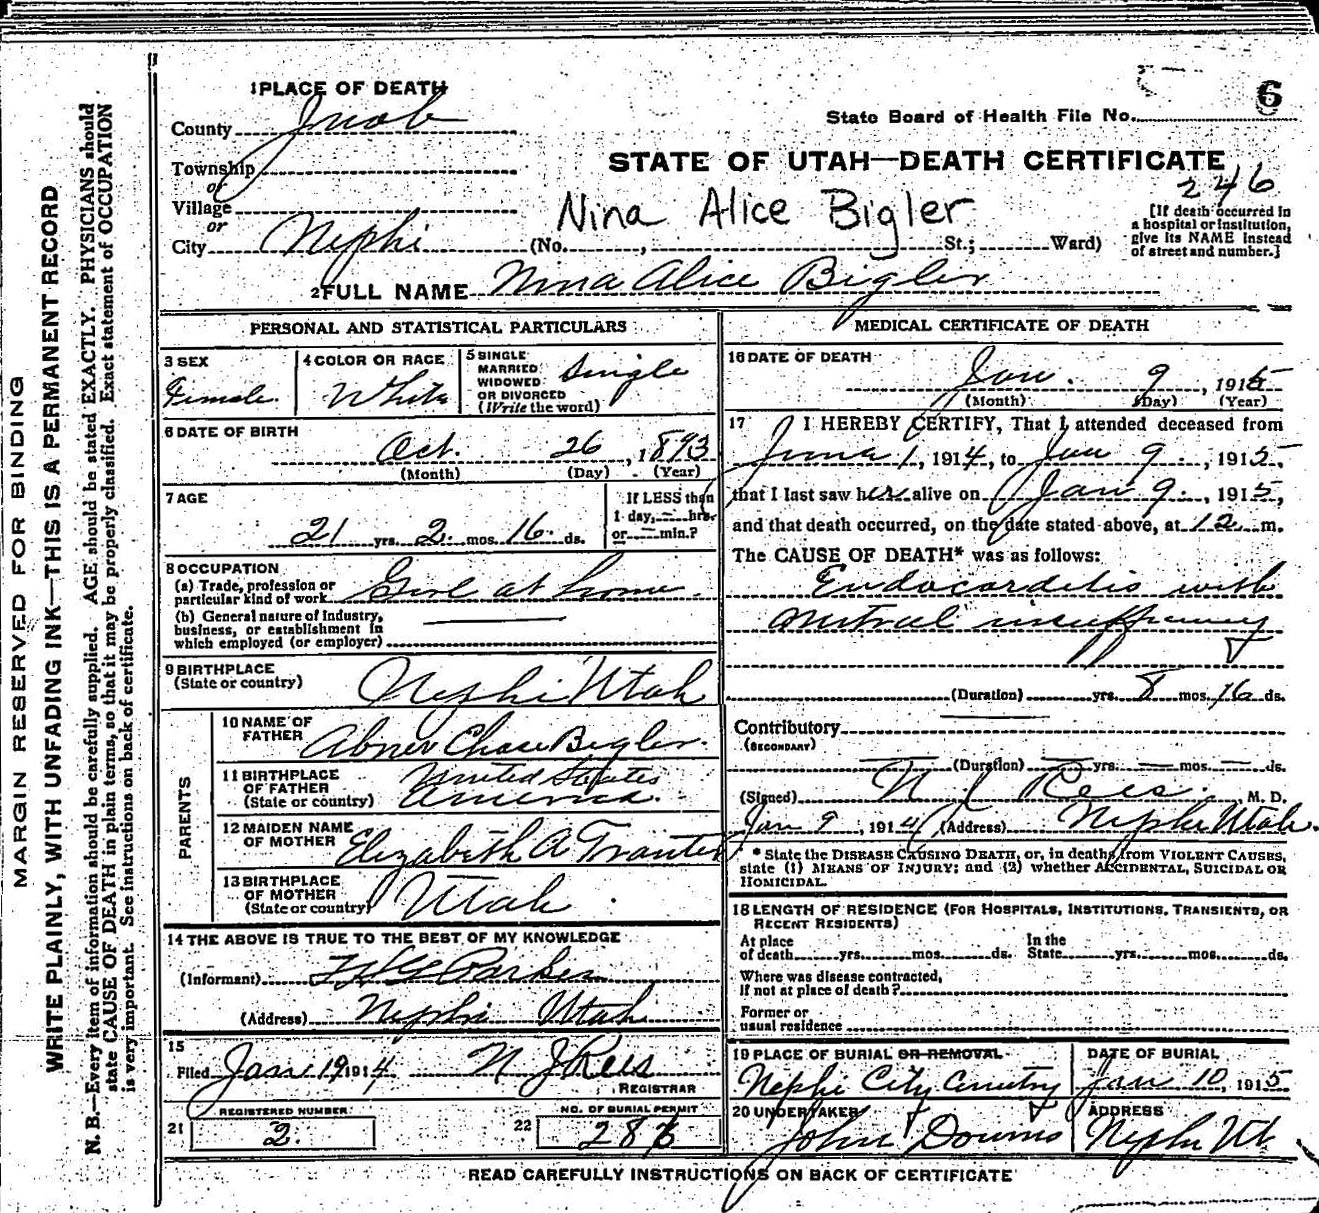 6
1 PLACE OF DEATH
State Board of Health File No.
County Juab
STATE OF UTAH—DEATH CERTIFICATE
Township
246
or
Village
Nina Alice Bigler
[If death occurred in
a hospital or institution,
give its NAME instead
of street and number.]
or
City Nephi (No. , St.; Ward)
2 FULL NAME Nina Alice Bigler
PERSONAL AND STATISTICAL PARTICULARS
3 SEX
Female.
4 COLOR OR RACE
White
5 SINGLE
MARRIED
WIDOWED
OR DIVORCED
(Write the word)
Single
6 DATE OF BIRTH
Oct. 26, 1893
(Month) (Day) (Year)
7 AGE
21 yrs. 2 mos. 16 ds.
If LESS than
1 day, — hrs.
or — min.?
8 OCCUPATION
(a) Trade, profession or
particular kind of work Girl at home.
(b) General nature of industry,
business, or establishment in
which employed (or employer)
9 BIRTHPLACE
(State or country)
Nephi Utah
PARENTS
10 NAME OF
FATHER
Abner Chase Bigler.
11 BIRTHPLACE
OF FATHER
(State or country)
United States
America.
12 MAIDEN NAME
OF MOTHER
Elizabeth A Tranter
13 BIRTHPLACE
OF MOTHER
(State or country)
Utah
14 THE ABOVE IS TRUE TO THE BEST OF MY KNOWLEDGE
(Informant) Parkes
(Address) Nephi Utah
15
Filed Jan 19 1914. N J Rees
REGISTRAR
REGISTERED NUMBER
21 2.
NO. OF BURIAL PERMIT
22
MEDICAL CERTIFICATE OF DEATH
16 DATE OF DEATH
Jan. 9, 1915
(Month) (Day) (Year)
17 I HEREBY CERTIFY, That I attended deceased from
June 1, 1914, to Jan 9, 1915,
that I last saw her alive on Jan 9, 1915,
and that death occurred, on the date stated above, at 12 m.
The CAUSE OF DEATH* was as follows:
Endocarditis with
Mitral insufficiency
(Duration) yrs. 8 mos. 16 ds.
Contributory
(SECONDARY)
(Duration) — yrs. — mos. — ds.
(Signed) N J Rees. M. D.
Jan 9, 1914 (Address) Nephi Utah.
* State the DISEASE CAUSING DEATH, or, in deaths from VIOLENT CAUSES,
state (1) MEANS OF INJURY; and (2) whether ACCIDENTAL, SUICIDAL OR
HOMICIDAL.
18 LENGTH OF RESIDENCE (FOR HOSPITALS, INSTITUTIONS, TRANSIENTS, OR
RECENT RESIDENTS)
At place
of death yrs. mos. ds.
In the
State yrs. mos. ds.
Where was disease contracted,
If not at place of death?
Former or
usual residence
19 PLACE OF BURIAL OR REMOVAL
Nephi City Cemetry
DATE OF BURIAL
Jan 10, 1915
20 UNDERTAKER
John Downs
ADDRESS
Nephi Ut.
READ CAREFULLY INSTRUCTIONS ON BACK OF CERTIFICATE
MARGIN RESERVED FOR BINDING
WRITE PLAINLY, WITH UNFADING INK—THIS IS A PERMANENT RECORD
N. B.—Every item of information should be carefully supplied. AGE should be stated EXACTLY. PHYSICIANS should
state CAUSE OF DEATH in plain terms, so that it may be properly classified. Exact statement of OCCUPATION
is very important. See instructions on back of certificate.